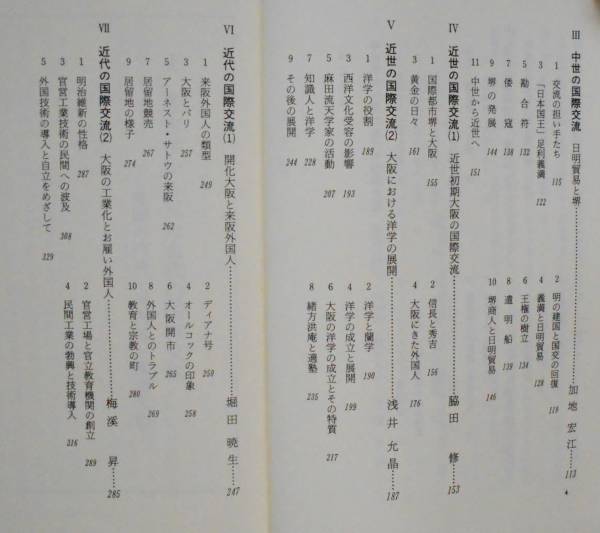 III 中世の国際交流 日明貿易と堺……加地 宏江……113
1 交流の担い手たち 115
2 明の建国と国交の回復 119
3 「日本国王」足利義満 122
4 義満と日明貿易 128
5 勘合符 132
6 王権の樹立 134
7 倭寇 138
8 遣明船 139
9 堺の発展 144
10 堺商人と日明貿易 146
11 中世から近世へ 151
IV 近世の国際交流(1) 近世初期大阪の国際交流……脇田 修……153
1 国際都市堺と大阪 155
2 信長と秀吉 156
3 黄金の日々 161
4 大阪にきた外国人 176
V 近世の国際交流(2) 大阪における洋学の展開……浅井 允晶……187
1 洋学の役割 189
2 洋学と蘭学 190
3 西洋文化受容の影響 193
4 洋学の成立と展開 199
5 麻田流天学家の活動 207
6 大阪の洋学の成立とその特質 217
7 知識人と洋学 228
8 緒方洪庵と適塾 235
9 その後の展開 244
4
VI 近代の国際交流(1) 開化大阪と来阪外国人……堀田 暁生……247
1 来阪外国人の類型 249
2 ディアナ号 250
3 大阪とパリ 257
4 オールコックの印象 258
5 アーネスト・サトウの来阪 262
6 大阪開市 265
7 居留地競売 267
8 外国人とのトラブル 269
9 居留地の様子 274
10 教育と宗教の町 280
VII 近代の国際交流(2) 大阪の工業化とお雇い外国人……梅溪 昇……285
1 明治維新の性格 287
2 官営工場と官立教育機関の創立 289
3 官営工業技術の民間への波及 308
4 民間工業の勃興と技術導入 316
5 外国技術の導入と自立をめざして 329